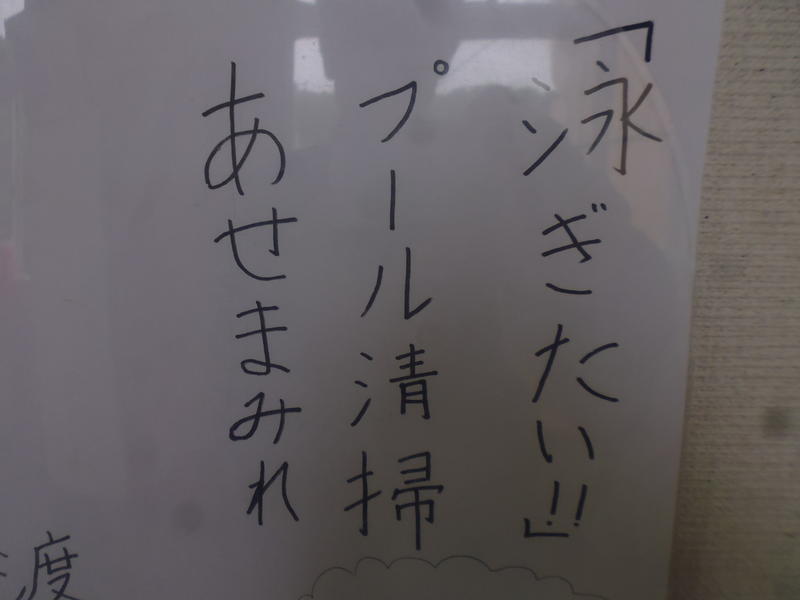 「泳ぎたい!!」
プール清掃
あせまみれ
渡